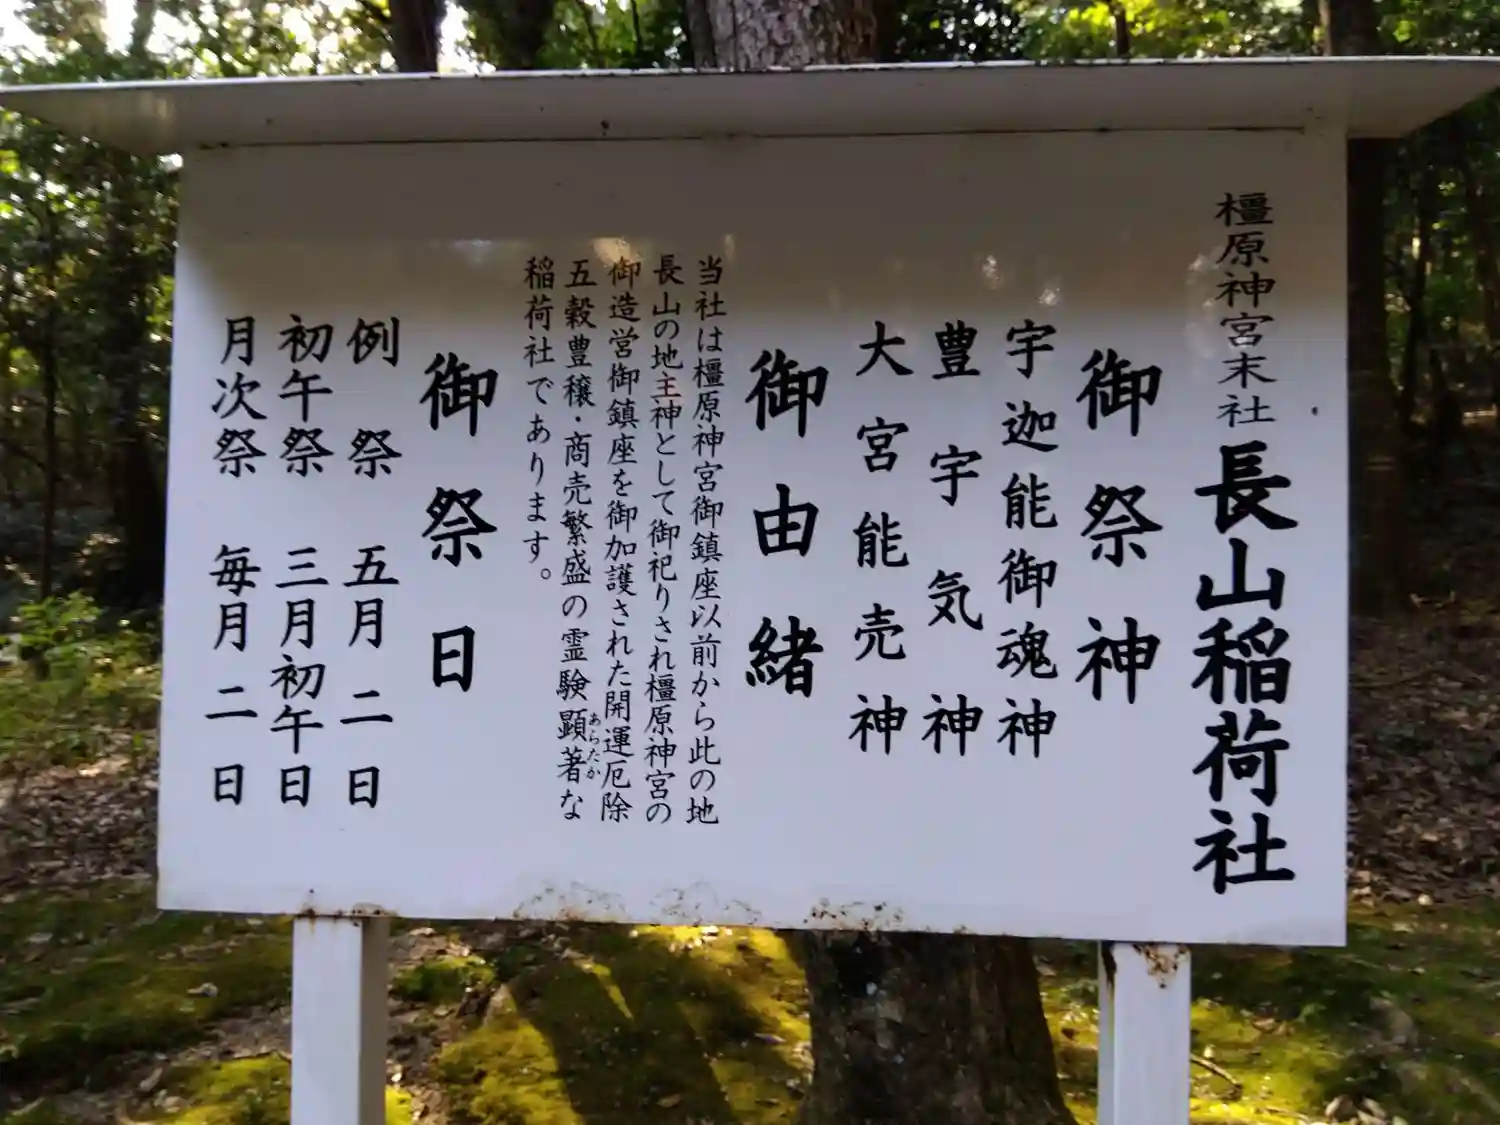 橿原神宮末社 長山稲荷社
御祭神
宇迦能御魂神
豊宇気神
大宮能売神
御由緒
当社は橿原神宮御鎮座以前から此の地
長山の地主神として御祀りされ橿原神宮の
御造営御鎮座を御加護された開運厄除
五穀豊穣・商売繁盛の霊験顕著な
あらたか
稲荷社であります。
御祭日
例祭 五月二日
初午祭 三月初午日
月次祭 毎月二日